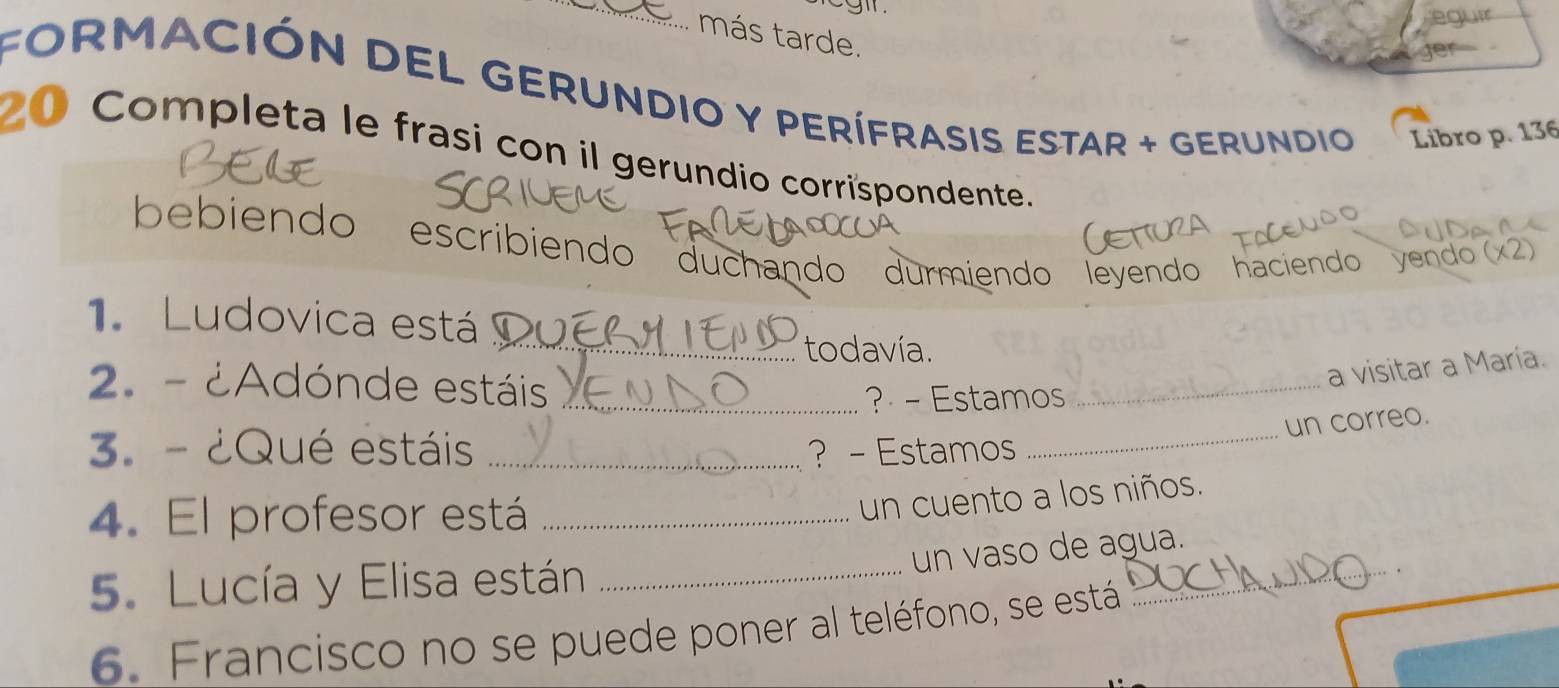 más tarde.
eguir
ger
FORMACIÓN DEL GERUNDIO Y PERÍFRASIS ESTAR + GERUNDIO Libro p. 136
20 Completa le frasi con il gerundio corrispondente.
BEGE SCRIVEME LETTURA FACENDO
bebiendo escribiendo duchando durmiendo leyendo haciendo yendo (x2)
1. Ludovica está DUERMIENDO todavía.
2. - ¿Adónde estáis YENDO ? - Estamos a visitar a María.
3. - ¿Qué estáis ? - Estamos un correo.
4. El profesor está un cuento a los niños.
5. Lucía y Elisa están un vaso de agua.
6. Francisco no se puede poner al teléfono, se está DUCHANDO .